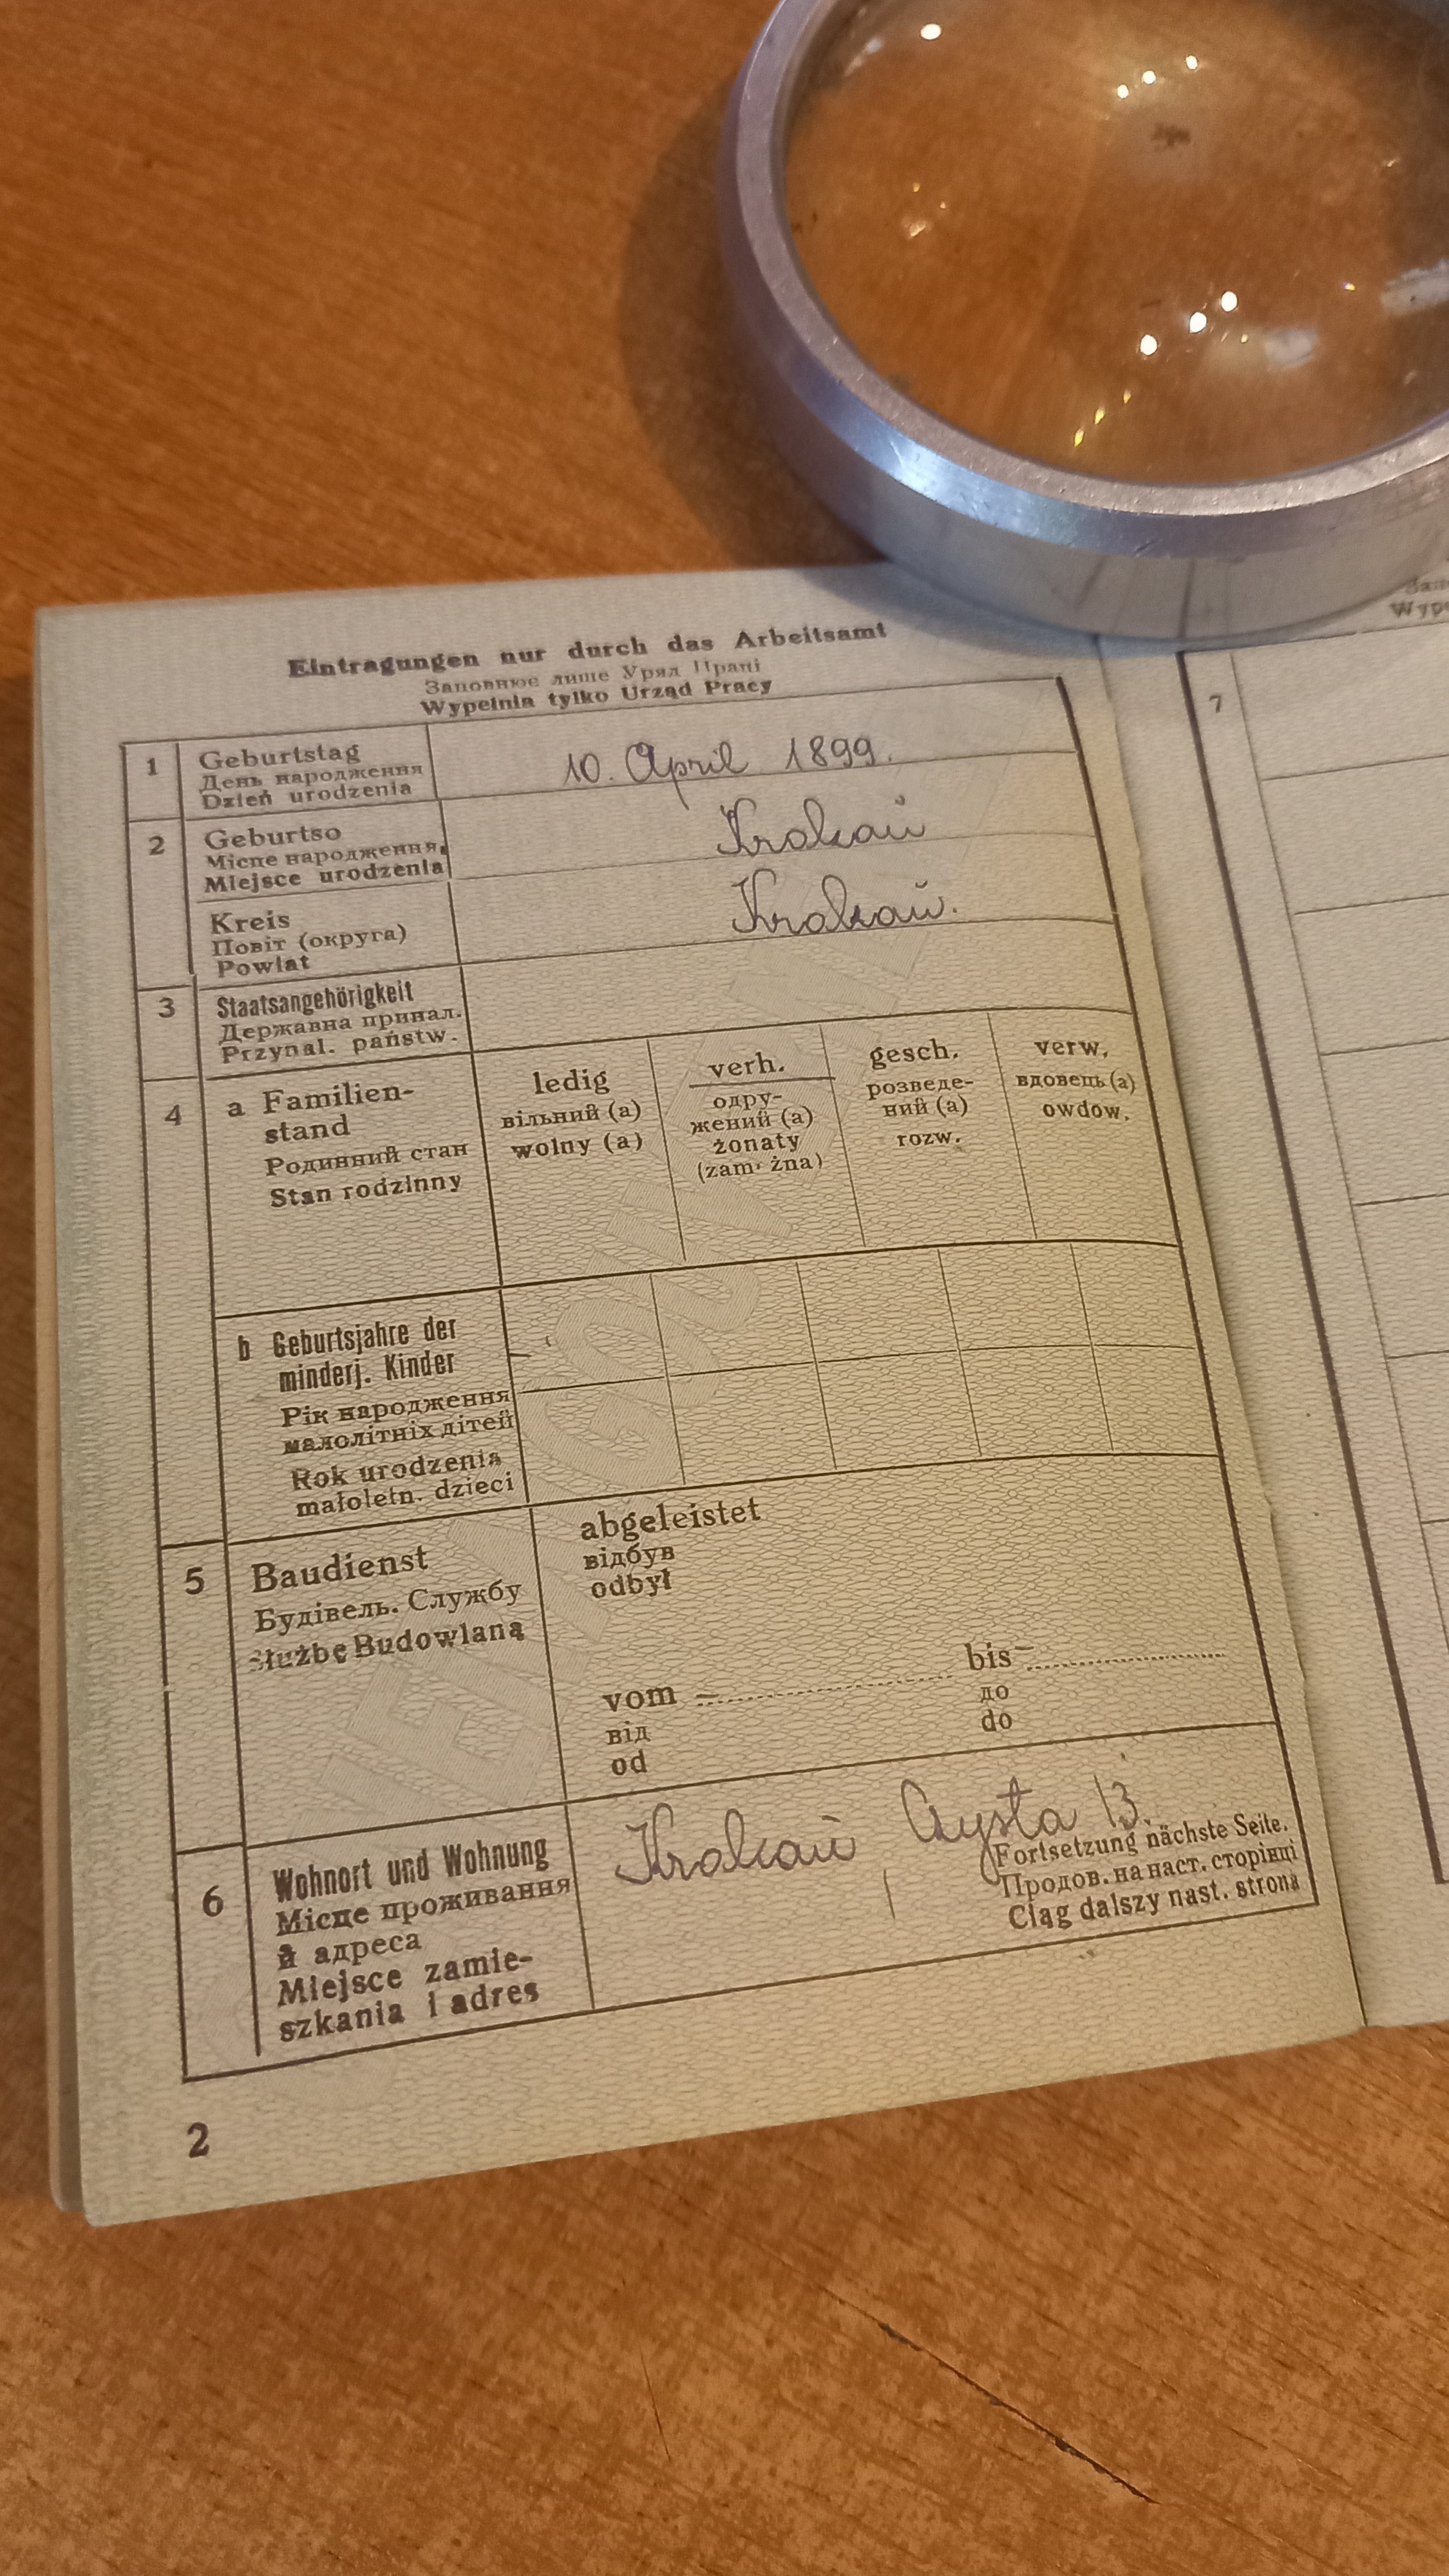 Eintragungen nur durch das Arbeitsamt
Заповнює лише Уряд Праці
Wypełnia tylko Urząd Pracy
1 Geburtstag 10. April 1899.
День народження
Dzień urodzenia
2 Geburtso Krakau
Місце народження
Miejsce urodzenia
Kreis Krakau.
Повіт (округа)
Powiat
3 Staatsangehörigkeit
Державна принал.
Przynal. państw.
4 a Familien-
stand
Родинний стан
Stan rodzinny
ledig
вільний (а)
wolny (a)
verh.
одру-
жений (а)
żonaty
(zam. żna)
gesch.
розведе-
ний (а)
rozw.
verw.
вдовець (а)
owdow.
b Geburtsjahre der
minderj. Kinder
Рік народження
малолітніх дітей
Rok urodzenia
małoletn. dzieci
5 Baudienst
Будівель. Службу
Służbę Budowlaną
abgeleistet
відбув
odbył
vom – bis –
від до
od do
6 Wohnort und Wohnung
Місце проживання
й адреса
Miejsce zamie-
szkania i adres
Krakau Czysta 13.
Fortsetzung nächste Seite.
Продов. на наст. сторінці
Ciąg dalszy nast. strona
2
7